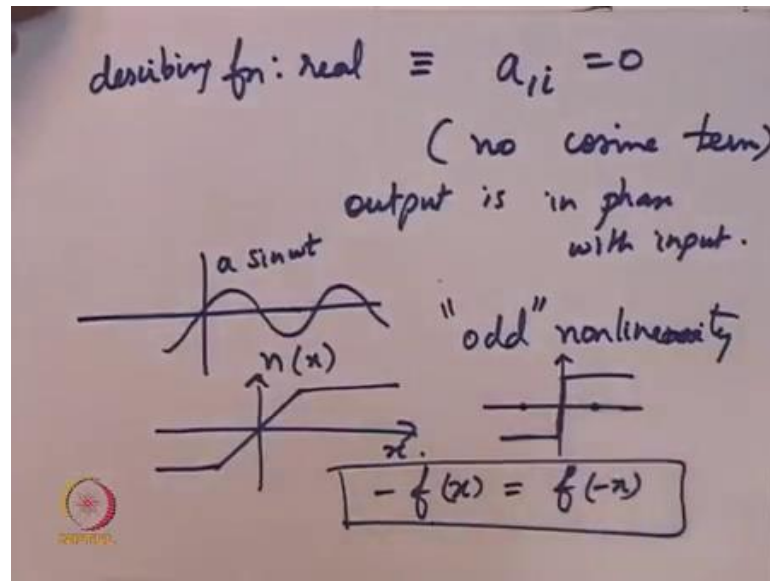 describing fn: real ≡ a₁ᵢ = 0
(no cosine term)
output is in phase
with input.
a sinωt
"odd" nonlinearity
n(x)
x.
- f(x) = f(-x)
NPTEL